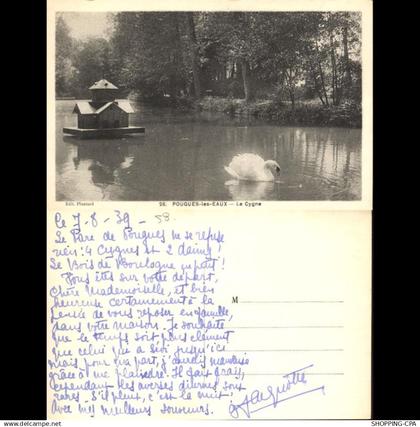 Edit. Plantard
26. POUGUES-les-EAUX — Le Cygne
Ce 7-8-39 -
Le Parc de Pougues ne se refuse
rien : 4 Cygnes et 2 daims !
Le Bois de Boulogne en petit !
Vous êtes sur votre départ,
chère Mademoiselle, et bien
heureuse certainement à la
pensée de vous reposer en famille,
dans votre maison. Je souhaite
que le temps soit plus clément
que celui qui a sévi jusqu'ici
mais pour ma part, j'aurais mauvaise
grâce à me plaindre. Il fait frais,
cependant les averses diurnes sont
rares. S'il pleut, c'est la nuit,
avec mes meilleurs souvenirs.
M